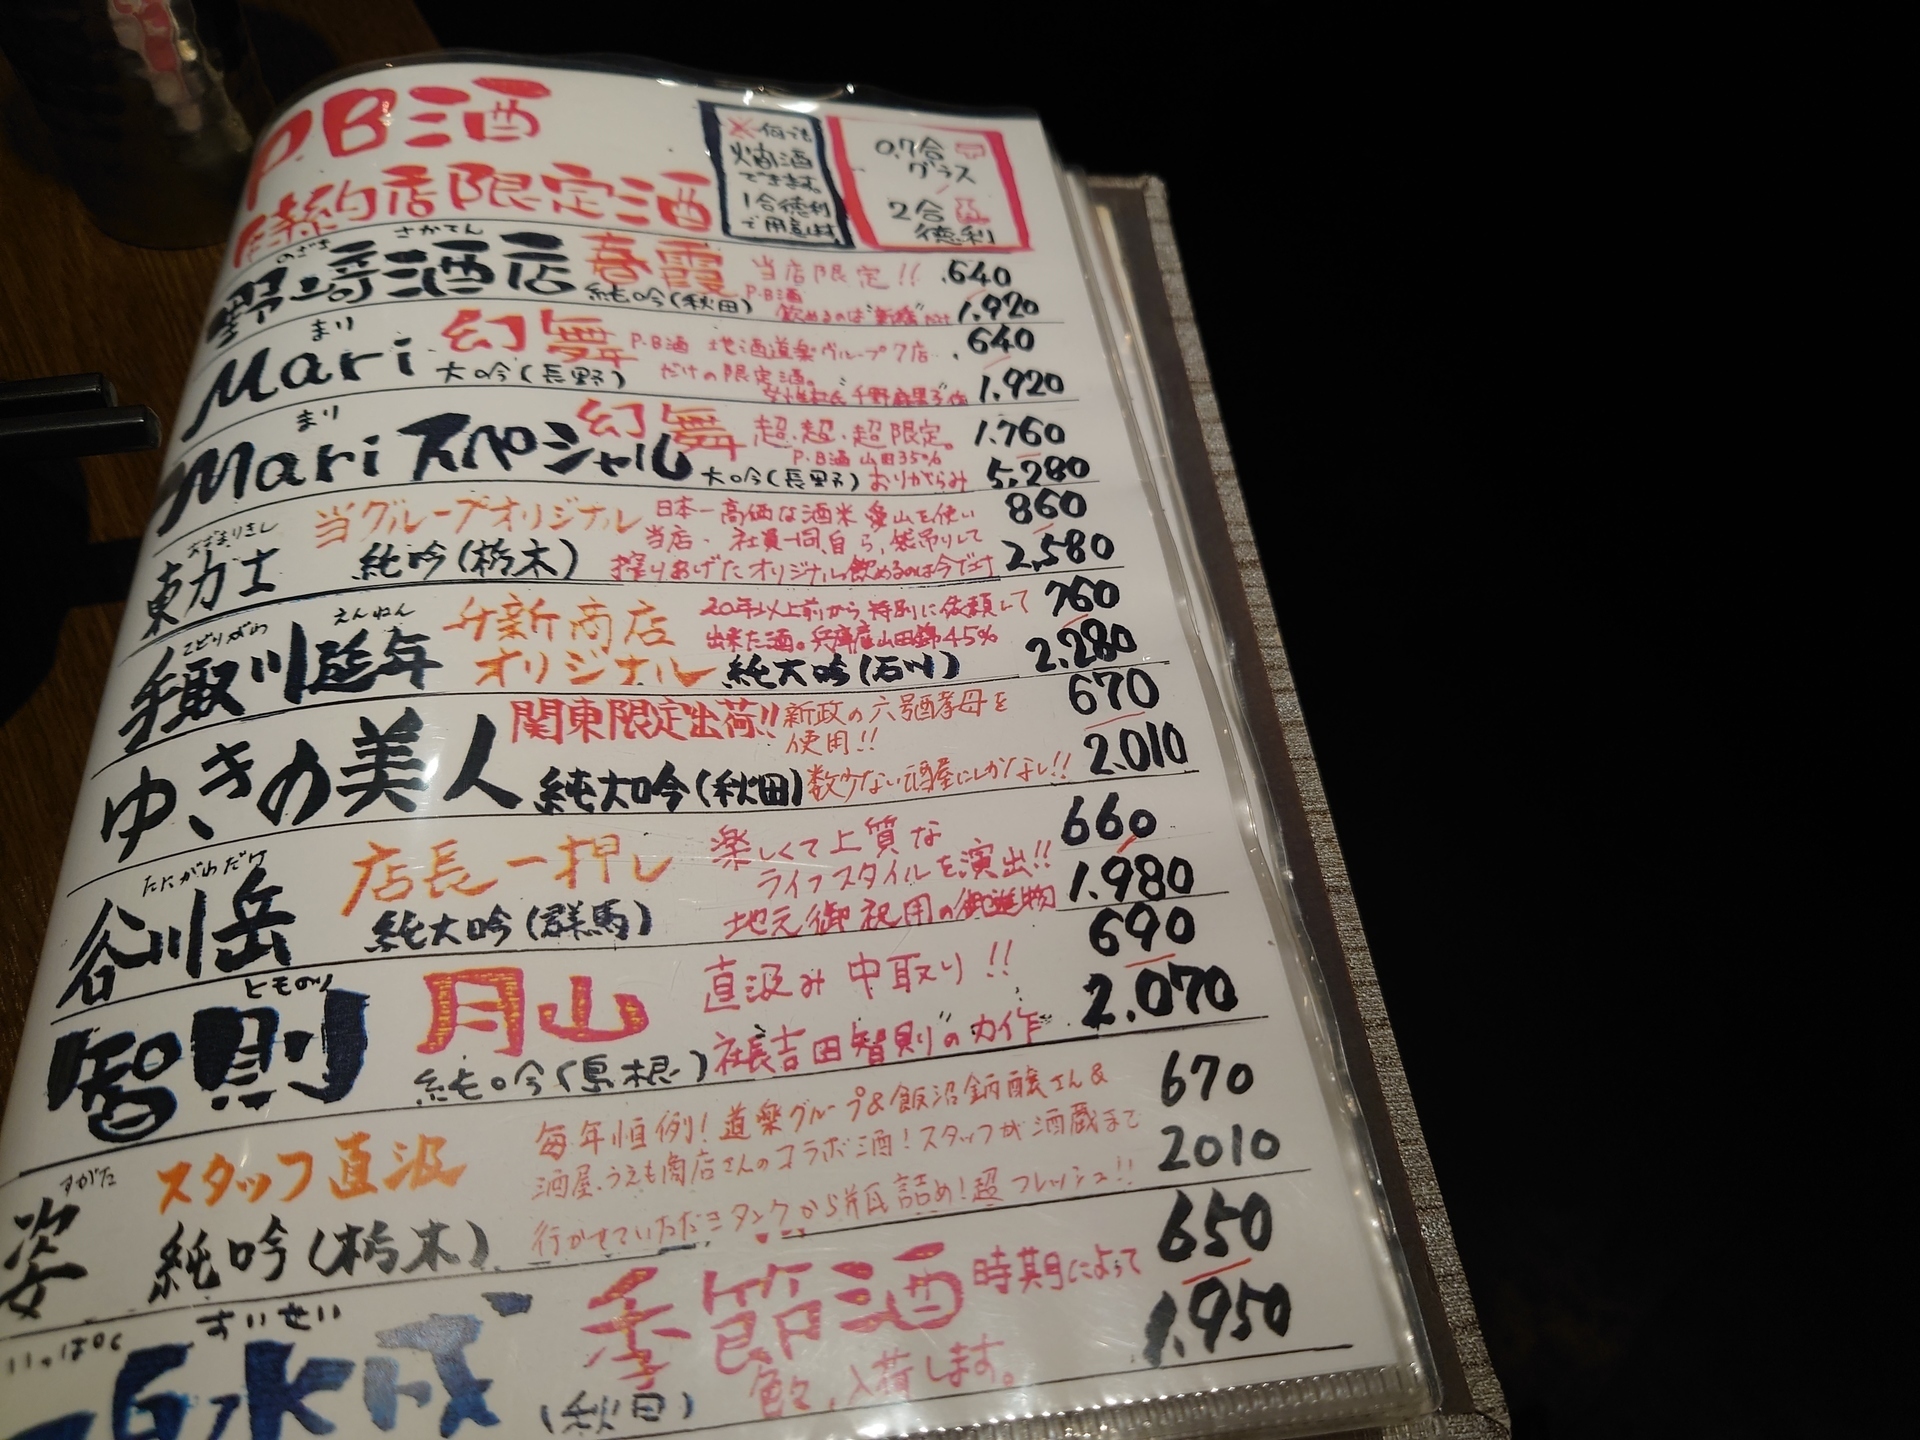 P.B酒
特約店限定酒
※何でも
燗酒
できます。
1合徳利
で用意します
0.7合
グラス
2合
徳利
のざき さかてん
野崎酒店 春霞 当店限定!! 640
純吟(秋田) P.B酒
飲めるのは"新橋"だけ 1,920
まり
Mari 幻舞 P.B酒 地酒道楽グループ7店 640
大吟(長野) だけの限定酒。
女性杜氏千野麻里子作 1,920
まり
Mariスペシャル 幻舞 超・超・超限定。 1.760
P.B酒 山田35%
大吟(長野) おりがらみ 5,280
あずまりきし
東力士 当グループオリジナル 日本一高価な酒米 愛山を使い 860
純吟(栃木) 当店・社員一同、自ら、袋吊りして
搾りあげたオリジナル飲めるのは今だけ 2,580
てどりがわ えんねん
手取川延年 升新商店 20年以上前から特別に依頼して 760
オリジナル 出来た酒。兵庫産山田錦45%
純大吟(石川) 2.280
ゆきの美人 関東限定出荷!! 新政の六号酵母を 670
使用!!
純大吟(秋田) 数少ない酒屋にしかなし!! 2.010
たにがわだけ
谷川岳 店長一押し 楽しくて上質な 660
ライフスタイルを演出!!
純大吟(群馬) 地元御祝用の御進物 1.980
とものり
智則 月山 直汲み中取り!! 690
純吟(島根) 社長吉田智則"の力作 2.070
すがた
姿 スタッフ直汲 毎年恒例!道楽グループ&飯沼銘醸さん& 670
酒屋・うえも商店さんのコラボ酒!スタッフが酒蔵まで 2010
純吟(栃木) 行かせていただきタンクから瓶詰め!超フレッシュ!!
いっぱく すいせい
一白水成 季節酒 時期によって 650
(秋田) 色々、入荷します。 1.950